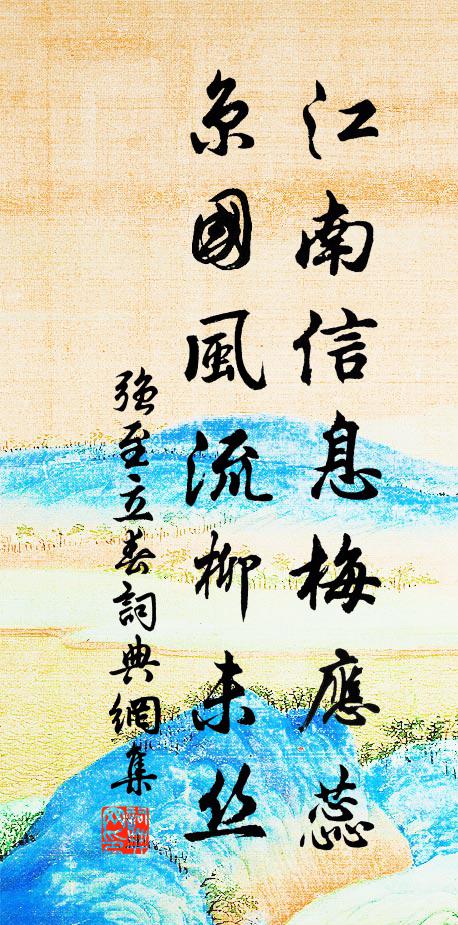 江南信息梅應蕊
京國風流柳未丝
強至立春詞典網集